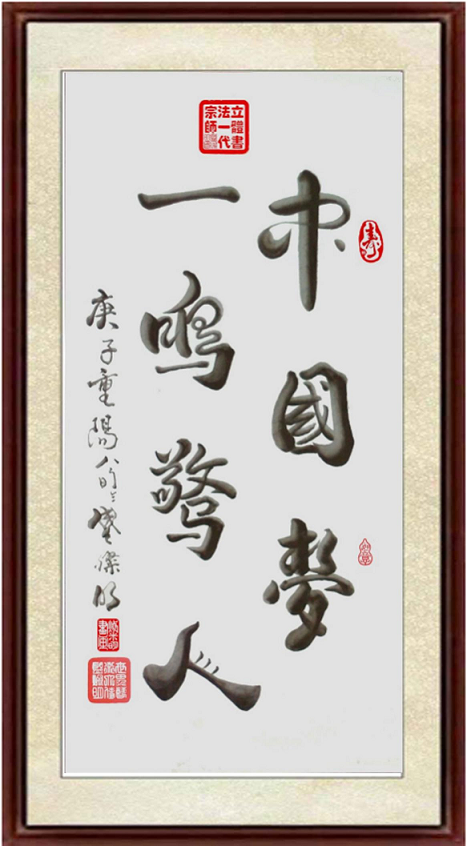 立體書
法一代
宗師
中國夢
一鳴驚人
庚子重陽